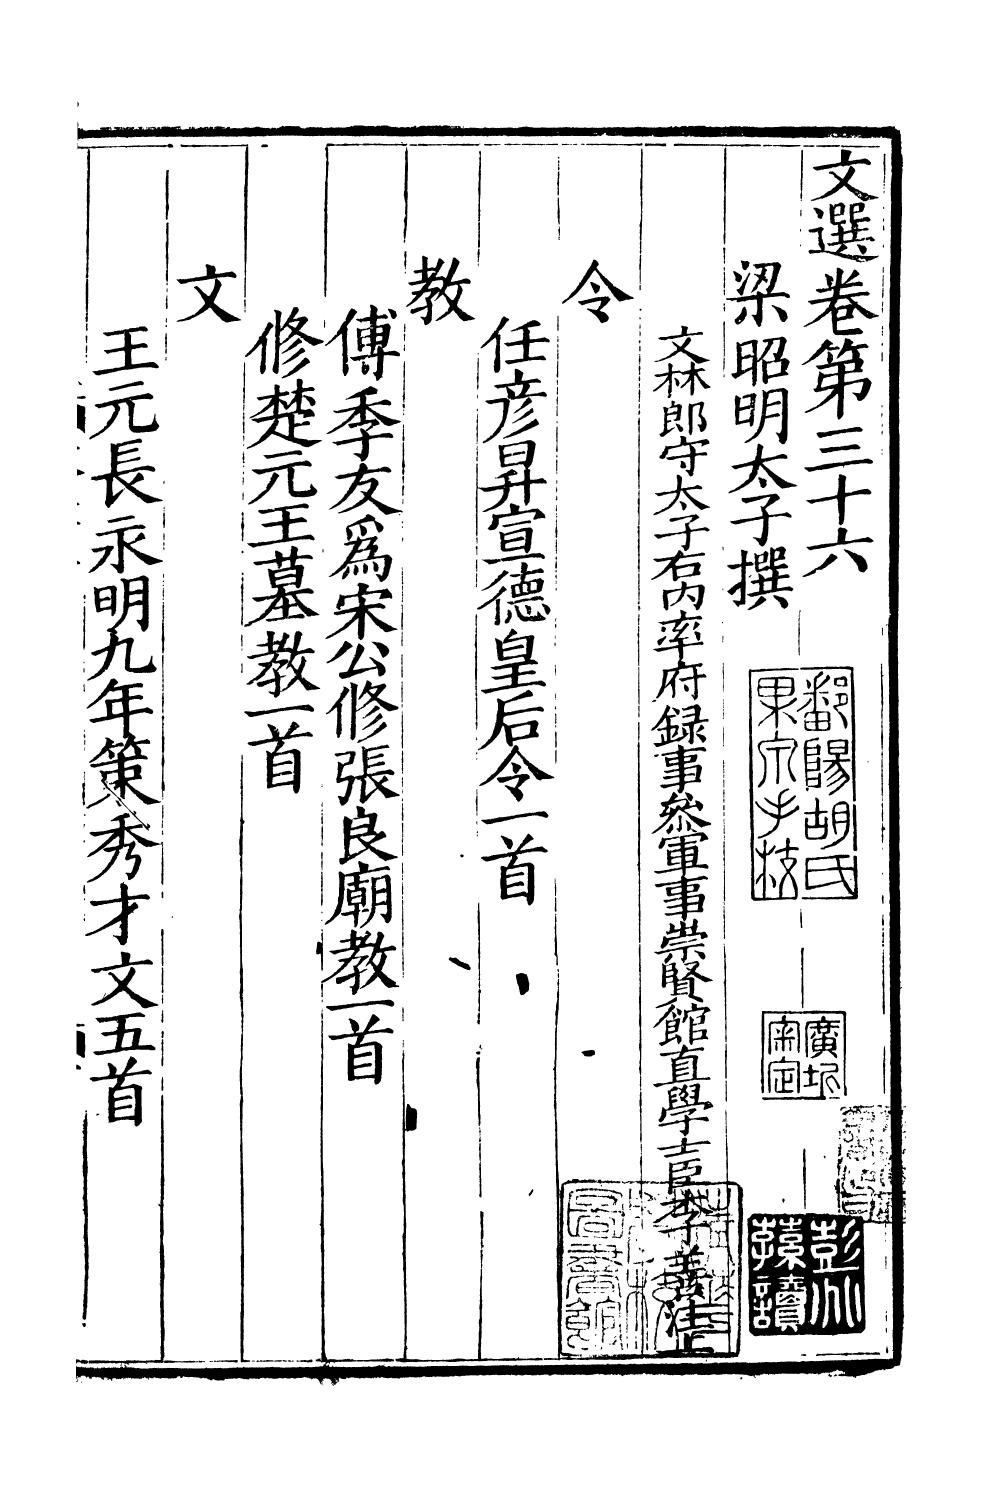 文選卷第三十六
梁昭明太子撰
文林郎守太子右内率府録事叅軍事崇賢館直學士臣李善注上
令
任彦昇宣德皇后令一首
教
傅季友爲宋公修張良廟教一首
修楚元王墓教一首
文
王元長永明九年策秀才文五首
鄱陽胡氏
果泉手校
彭州
孫讀